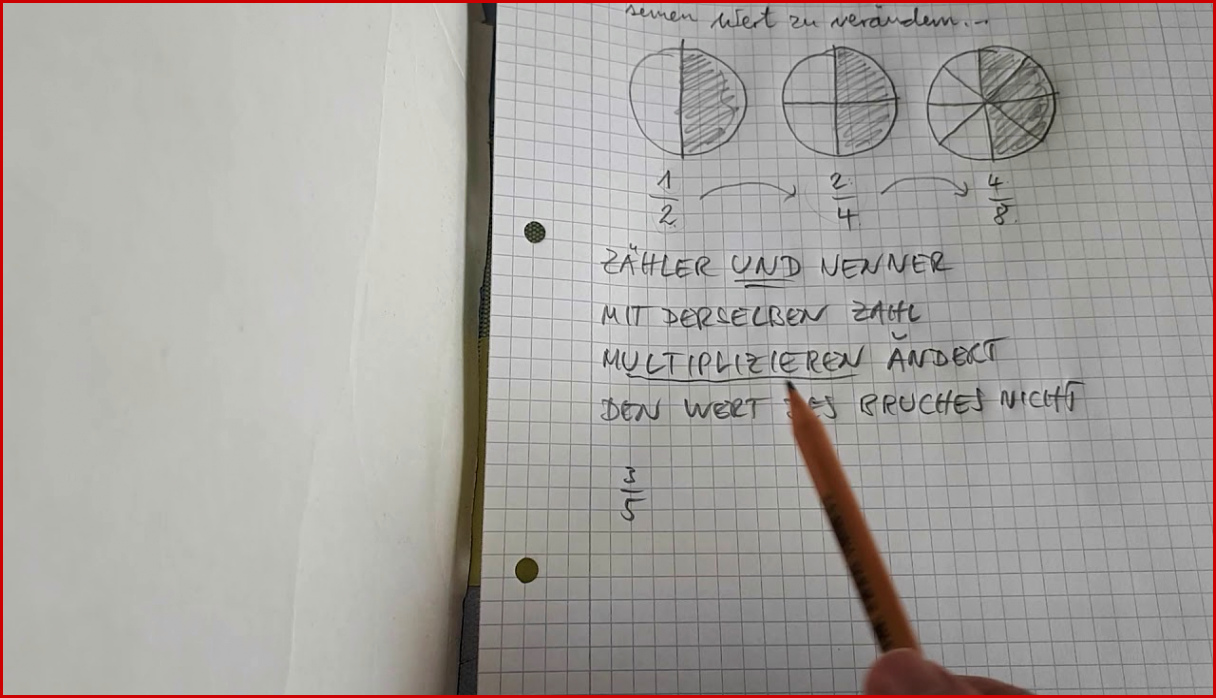 seinen Wert zu verändern...
1/2 → 2/4 → 4/8
ZÄHLER UND NENNER
MIT DERSELBEN ZAHL
MULTIPLIZIEREN ÄNDERT
DEN WERT DES BRUCHES NICHT
3/5